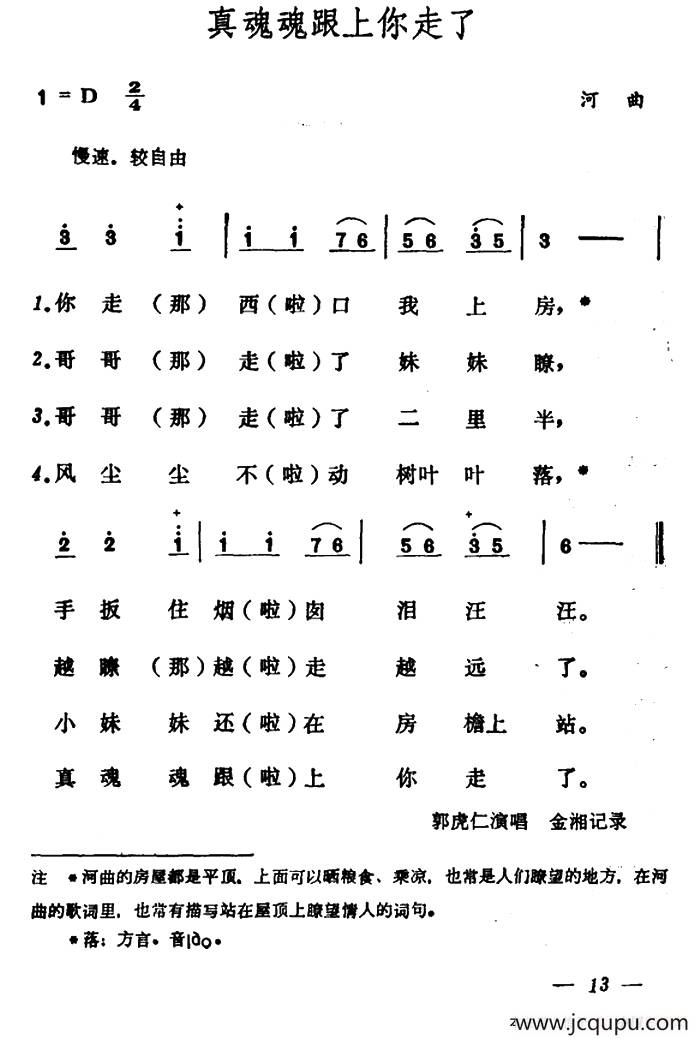 真魂魂跟上你走了
1 = D 2/4
河 曲
慢速。较自由
3 3 1 | 1 1 76 | 56 35 | 3 — |
1.你走（那）西（啦）口 我上房，*
2.哥哥（那）走（啦）了 妹妹瞭，
3.哥哥（那）走（啦）了 二里半，
4.风尘尘 不（啦）动 树叶叶落，*
2 2 1 | 1 1 76 | 56 35 | 6 — ‖
手扳住烟（啦）囱 泪汪汪。
越瞭（那）越（啦）走 越远了。
小妹妹还（啦）在 房檐上站。
真魂魂跟（啦）上 你走了。
郭虎仁演唱 金湘记录
注 *河曲的房屋都是平顶，上面可以晒粮食、乘凉，也常是人们瞭望的地方，在河
曲的歌词里，也常有描写站在屋顶上瞭望情人的词句。
*落：方言。音lào。
— 13 —
www.jcqupu.com